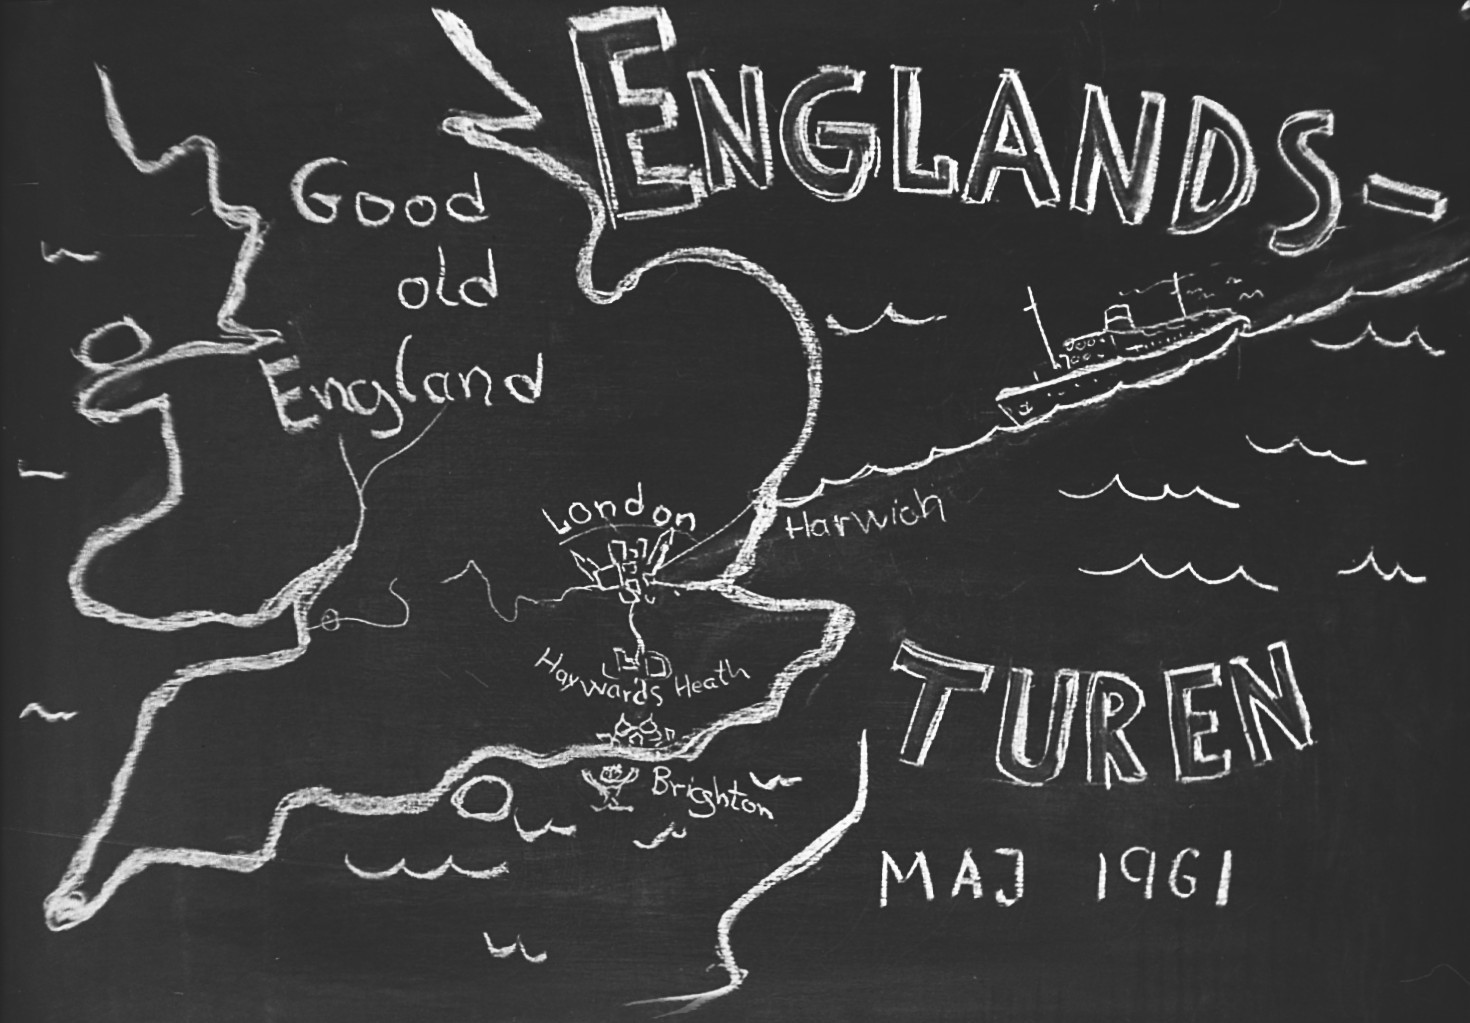 ENGLANDS-
TUREN
MAJ 1961
Good
old
England
London
Harwich
Haywards Heath
Brighton